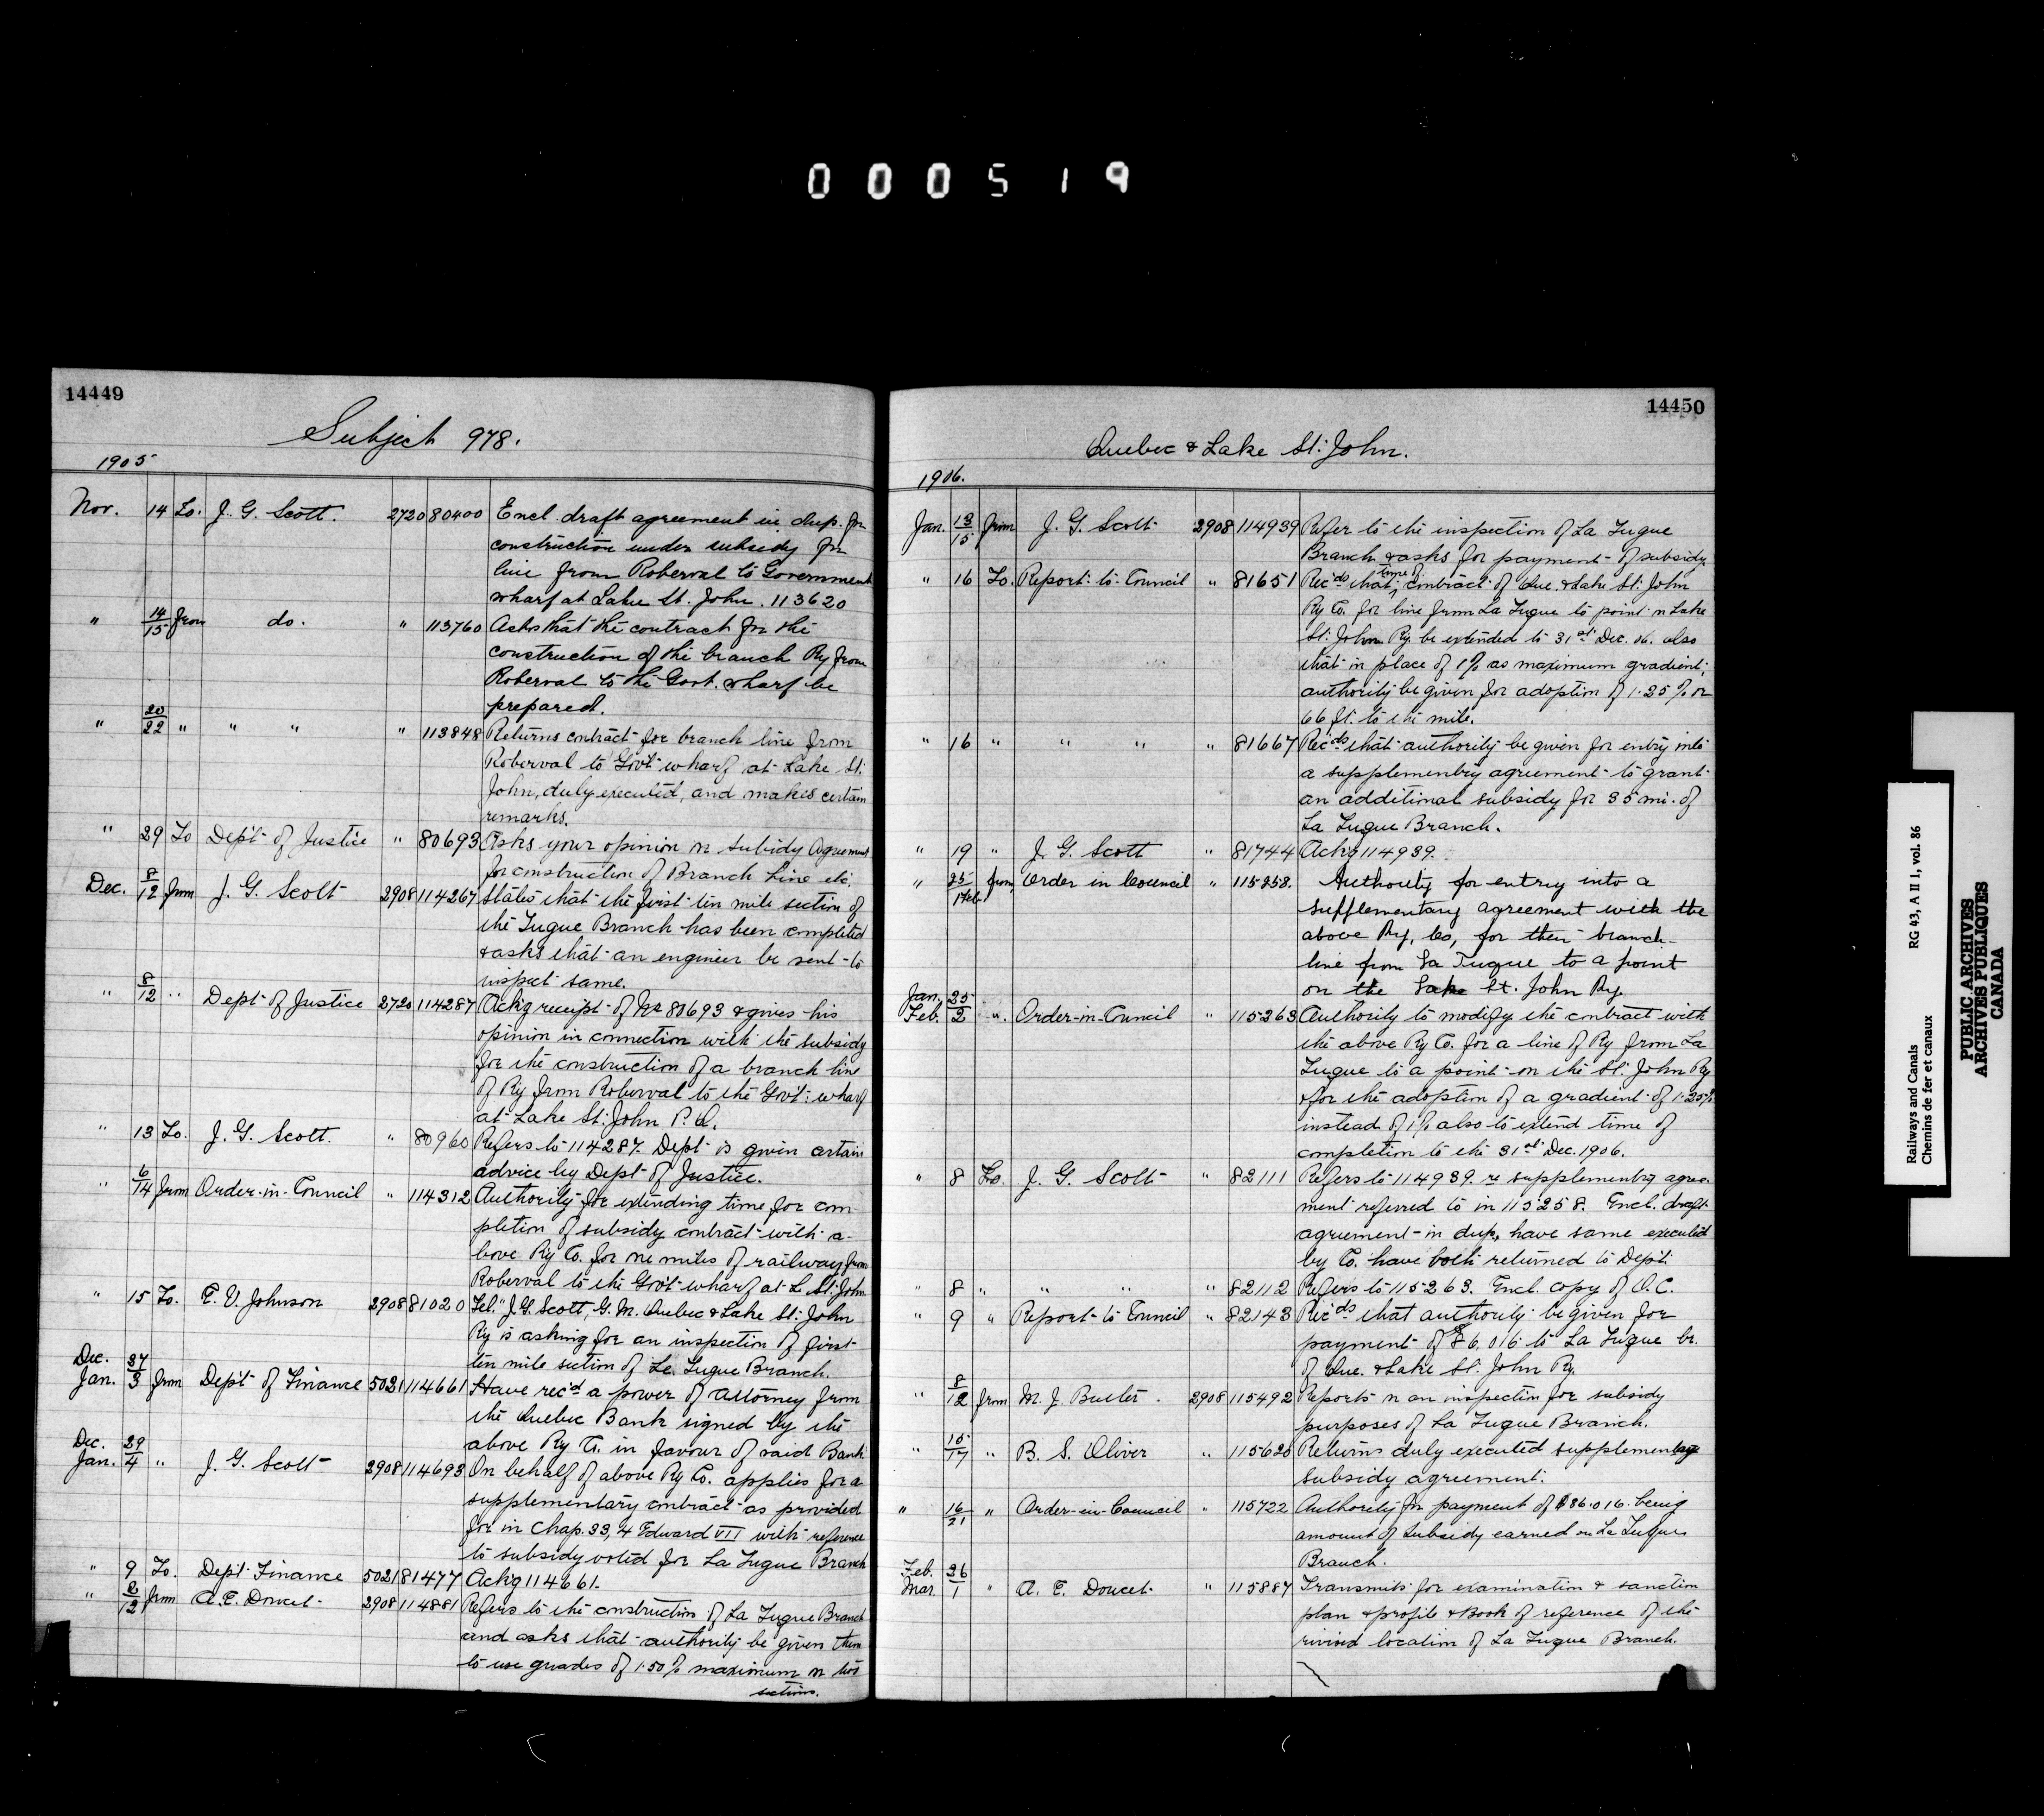 000519
14449
Subject 978.
1905
Nov. 14 To. J. G. Scott. 2720 80400 Encl. draft agreement in dup. for
construction under subsidy for
line from Roberval to Government
wharf at Lake St. John. 113620
" 14/15 from do. " 113760 Asks that the contract for the
construction of the branch Ry from
Roberval to the Govt. wharf be
prepared.
" 20/22 " " " " 113848 Returns contract for branch line from
Roberval to Gov't wharf at Lake St.
John, duly executed, and makes certain
remarks.
" 29 To Dep't of Justice " 80693 Asks your opinion on subsidy Agreement
for construction of Branch Line etc.
Dec. 8/12 from J. G. Scott 2908 114267 States that the first ten mile section of
the Tuque Branch has been completed
& asks that an engineer be sent to
inspect same.
" 8/12 " Dept of Justice 2720 114287 Ackg receipt of No 80693 & gives his
opinion in connection with the subsidy
for the construction of a branch line
of Ry from Roberval to the Gov't wharf
at Lake St. John P.Q.
" 13 To. J. G. Scott. " 80960 Refers to 114287. Dept is given certain
advice by Dept of Justice.
" 6/14 from Order-in-Council " 114312 Authority for extending time for com-
pletion of subsidy contract with a-
bove Ry Co. for one miles of railway from
Roberval to the Gov't wharf at L. St. John
" 15 To. E. V. Johnson 2908 81020 Tel. "J. G. Scott, G. M. Quebec & Lake St. John
Ry is asking for an inspection of first
ten mile section of Le Tuque Branch.
Dec. Jan. 37/3 from Dep't of Finance 5021 114661 Have rec'd a power of Attorney from
the Quebec Bank signed by the
above Ry Co. in favour of said Bank
Dec. Jan. 29/4 " J. G. Scott 2908 114693 On behalf of above Ry Co. applies for a
supplementary contract as provided
for in Chap. 33, 4 Edward VII with reference
to subsidy voted for La Tuque Branch
" 9 To. Dep't Finance 5021 81477 Ackg 114661.
" 8/12 from A. E. Doucet 2908 114881 Refers to the construction of La Tuque Branch
and asks that authority be given them
to use grades of 1.50% maximum on two
sections.
14450
Quebec & Lake St. John.
1906.
Jan. 13/15 from J. G. Scott 2908 114939 Refer to the inspection of La Tuque
Branch & asks for payment of subsidy.
" 16 To. Report to Council " 81651 Rec'ds that time of contract of Que. & Lake St. John
Ry Co. for line from La Tuque to point on Lake
St. John Ry. be extended to 31st Dec. 06. also
that in place of 1% as maximum gradient,
authority be given for adoption of 1.25% or
66 ft. to the mile.
" 16 " " " " 81667 Rec'ds that authority be given for entry into
a supplementry agreement to grant
an additional subsidy for 35 mi. of
La Tuque Branch.
" 19 " J. G. Scott " 81744 Ackg 114939.
" 25/1 Feb. from Order in Council " 115258. Authority for entry into a
supplementary agreement with the
above Ry. Co, for their branch
line from La Tuque to a point
on the Lake St. John Ry.
Jan. Feb. 25/2 " Order-in-Council " 115263 Authority to modify the contract with
the above Ry Co. for a line of Ry from La
Tuque to a point on the St. John Ry
& for the adoption of a gradient of 1.25%
instead of 1% also to extend time of
completion to the 31st Dec. 1906.
" 8 To. J. G. Scott " 82111 Refers to 114939. re supplementry agree-
ment referred to in 115258. Encl. draft
agreement in dup., have same executed
by Co. have both returned to Dept.
" 8 " " " " 82112 Refers to 115263. Encl. copy of O.C.
" 9 " Report to Council " 82143 Rec'ds that authority be given for
payment of $86,016 to La Tuque br.
of Que. & Lake St. John Ry.
" 8/12 from M. J. Butler. 2908 115492 Reports on an inspection for subsidy
purposes of La Tuque Branch.
" 15/17 " B. S. Oliver " 115620 Returns duly executed supplementary
subsidy agreement.
" 16/21 " Order-in-Council " 115722 Authority for payment of $86.016. being
amount of subsidy earned on La Tuque
Branch.
Feb. Mar. 26/1 " A. E. Doucet " 115887 Transmits for examination & sanction
plan & profile & Book of reference of the
revised location of La Tuque Branch.
Railways and Canals RG 43, A II 1, vol. 86
Chemins de fer et canaux
PUBLIC ARCHIVES
ARCHIVES PUBLIQUES
CANADA